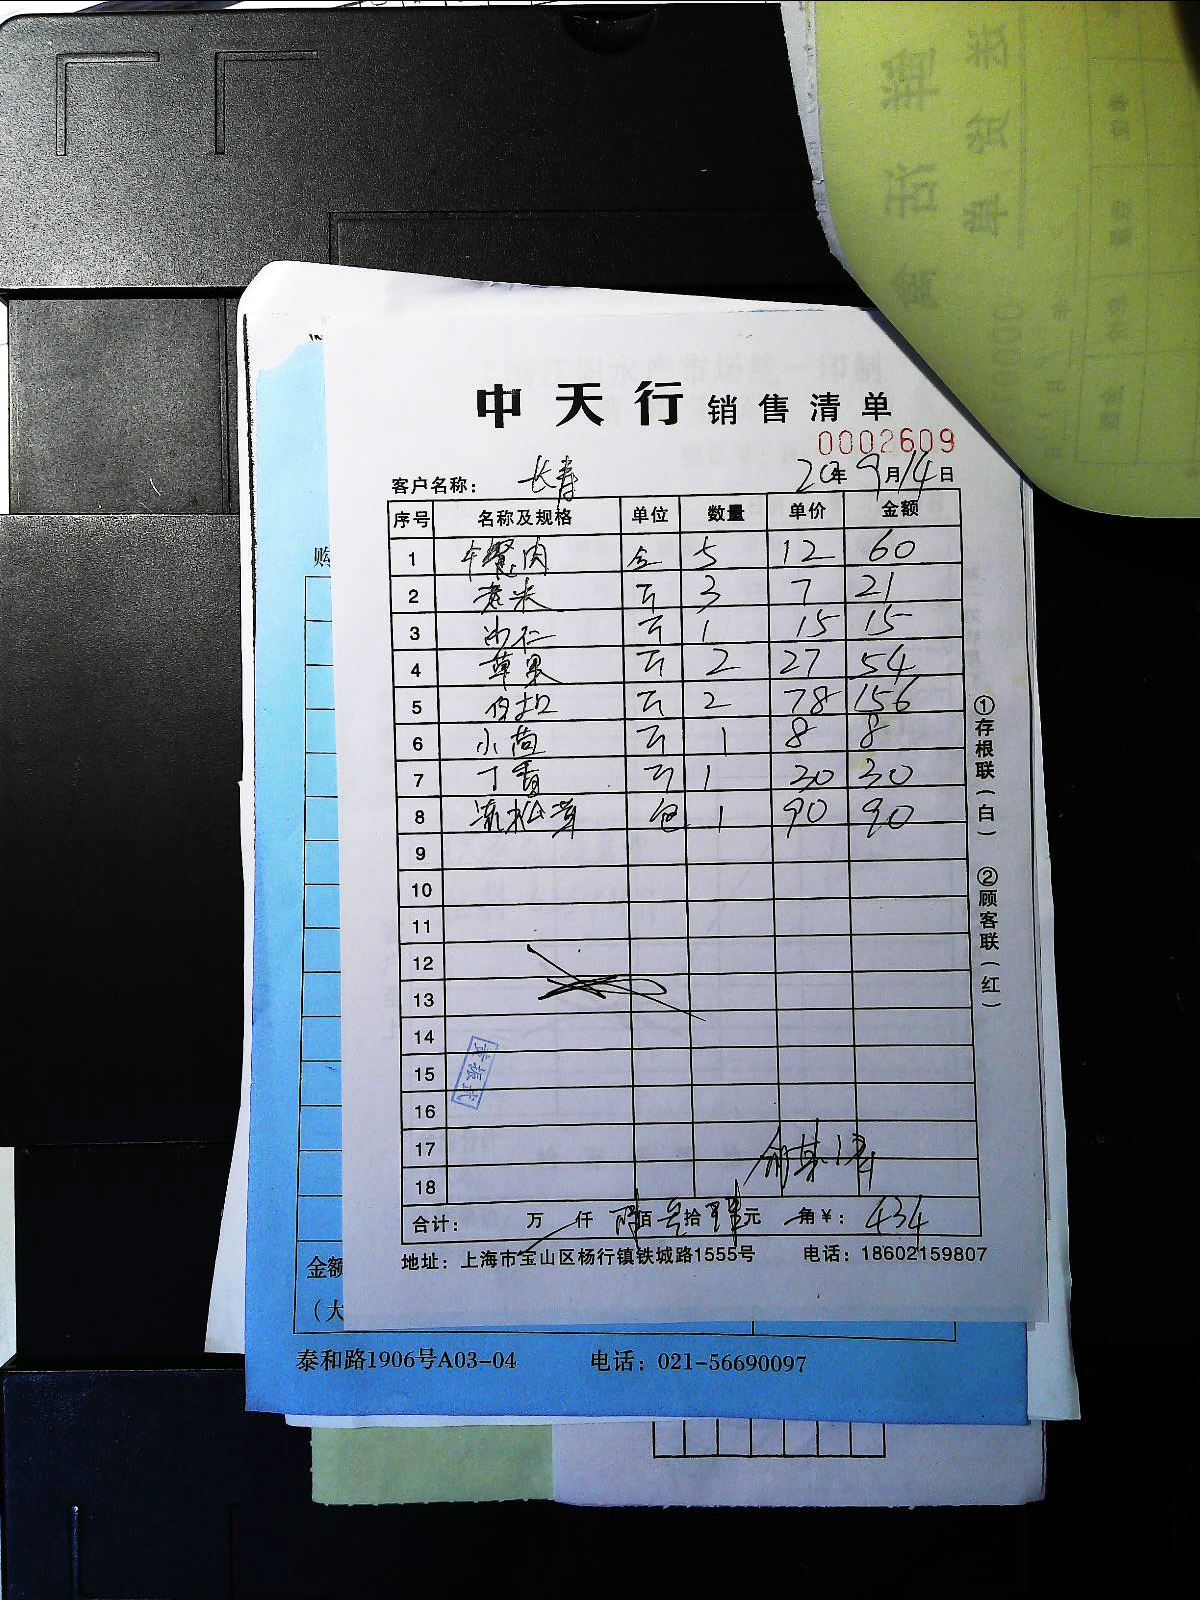 中天行 销售清单
0002609
客户名称： 长寿 20年9月14日
序号 名称及规格 单位 数量 单价 金额
1 午餐肉 5 12 60
2 3 7 21
3 沙仁 1 15 15
4 苹果 2 27 54
5 2 78 156
6 小茴 1 8 8
7 丁香 1 30 30
8 松茸 包 1 90 90
9
10
11
12
13
14
15
16
17
18
合计： 万 仟 肆佰叁拾肆元 角¥： 434
地址：上海市宝山区杨行镇铁城路1555号 电话：18602159807
①存根联（白） ②顾客联（红）
购
金额
（大
泰和路1906号A03-04 电话：021-56690097